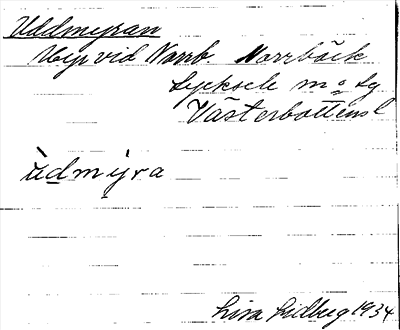 Uddmyran
Myr vid Norrb. Norrbäck
Lycksele m o sg
Västerbottens l
ùdmỳra
Lisa Lidberg 1934